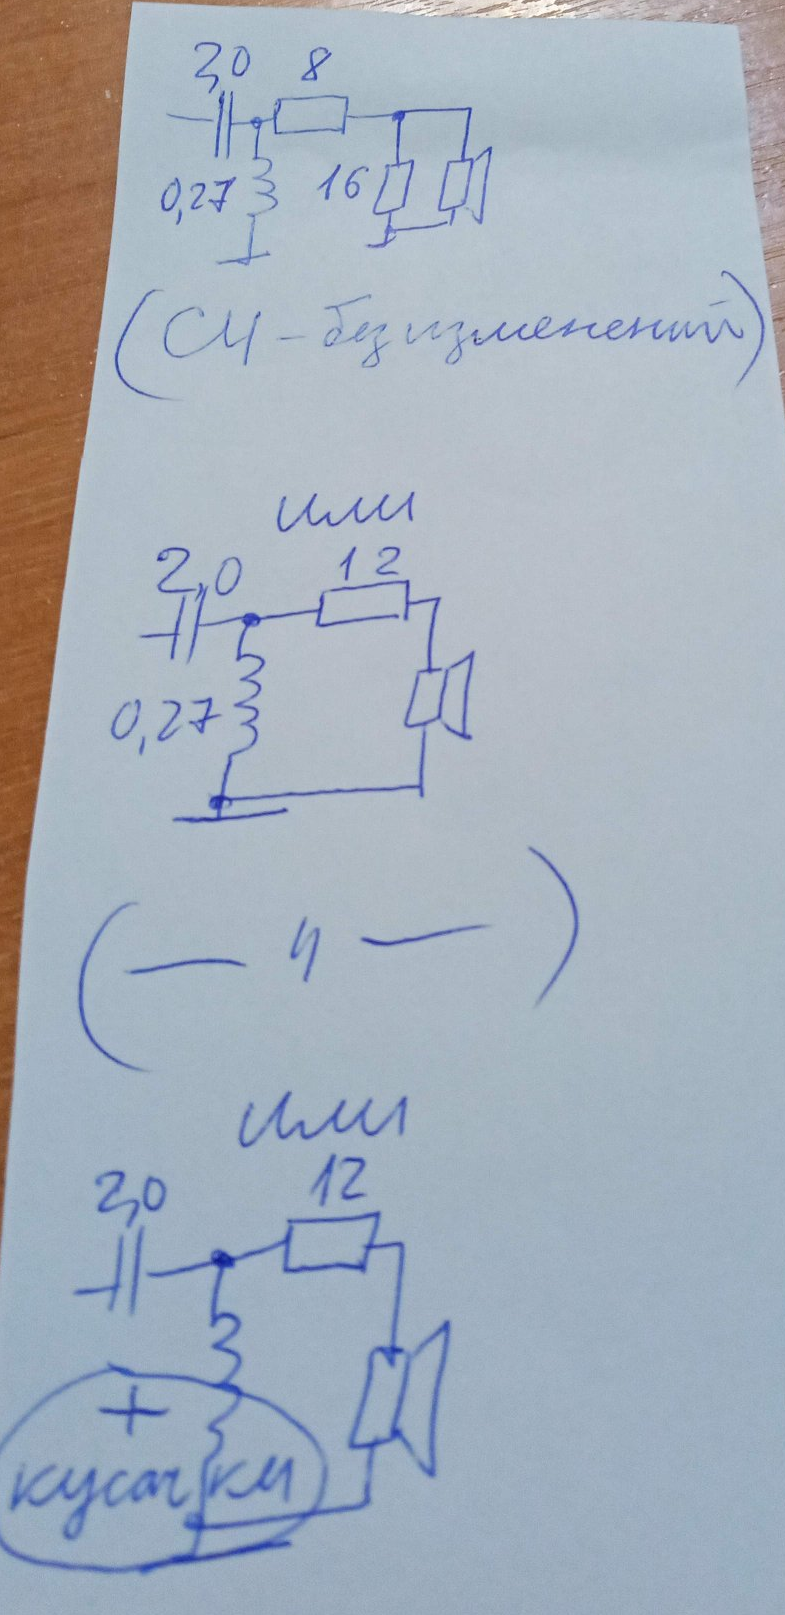 2,0 8
0,27 16
(СЧ - без изменений)
или
2,0 12
0,27
(— 〃 —)
или
2,0 12
+
кусачки